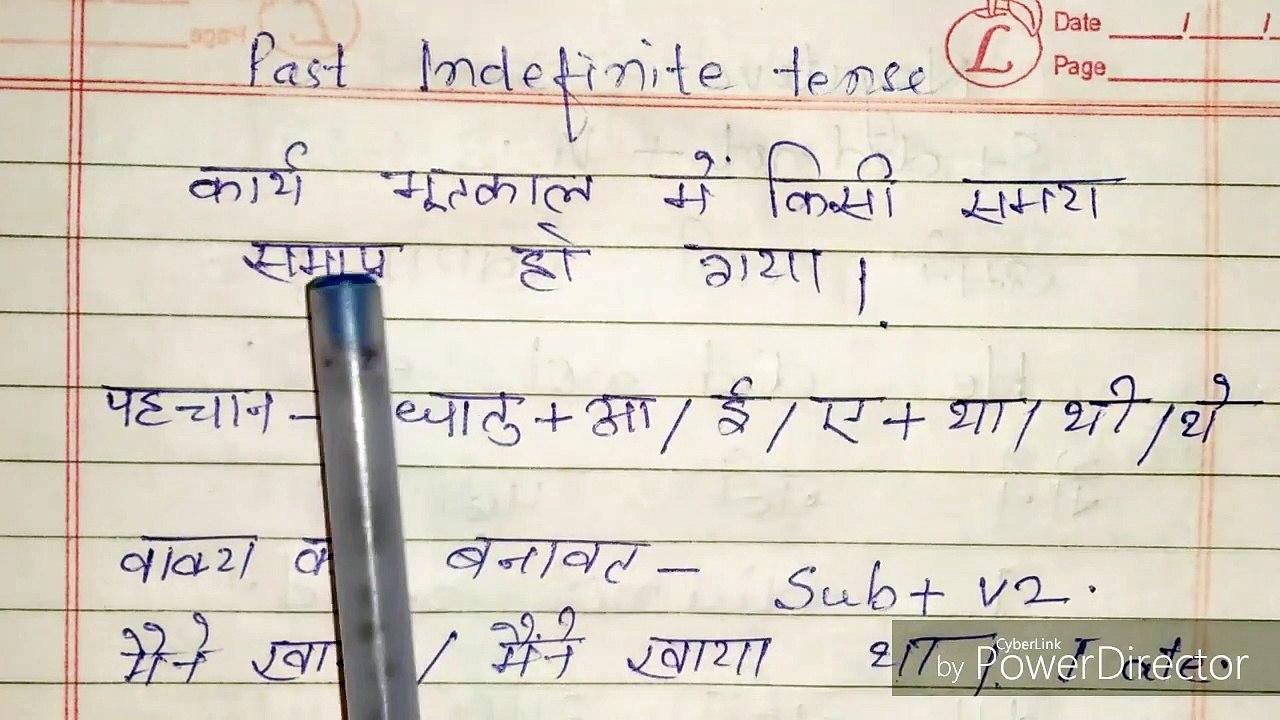 Date / /
Page
Past Indefinite tense
कार्य भूतकाल में किसी समय
समाप्त हो गया।
पहचान - धातु + आ / ई / ए + था / थी / थे
वाक्य बनावट - Sub + V2.
मैंने / मैंने खाया था। I ate.
CyberLink
by PowerDirector